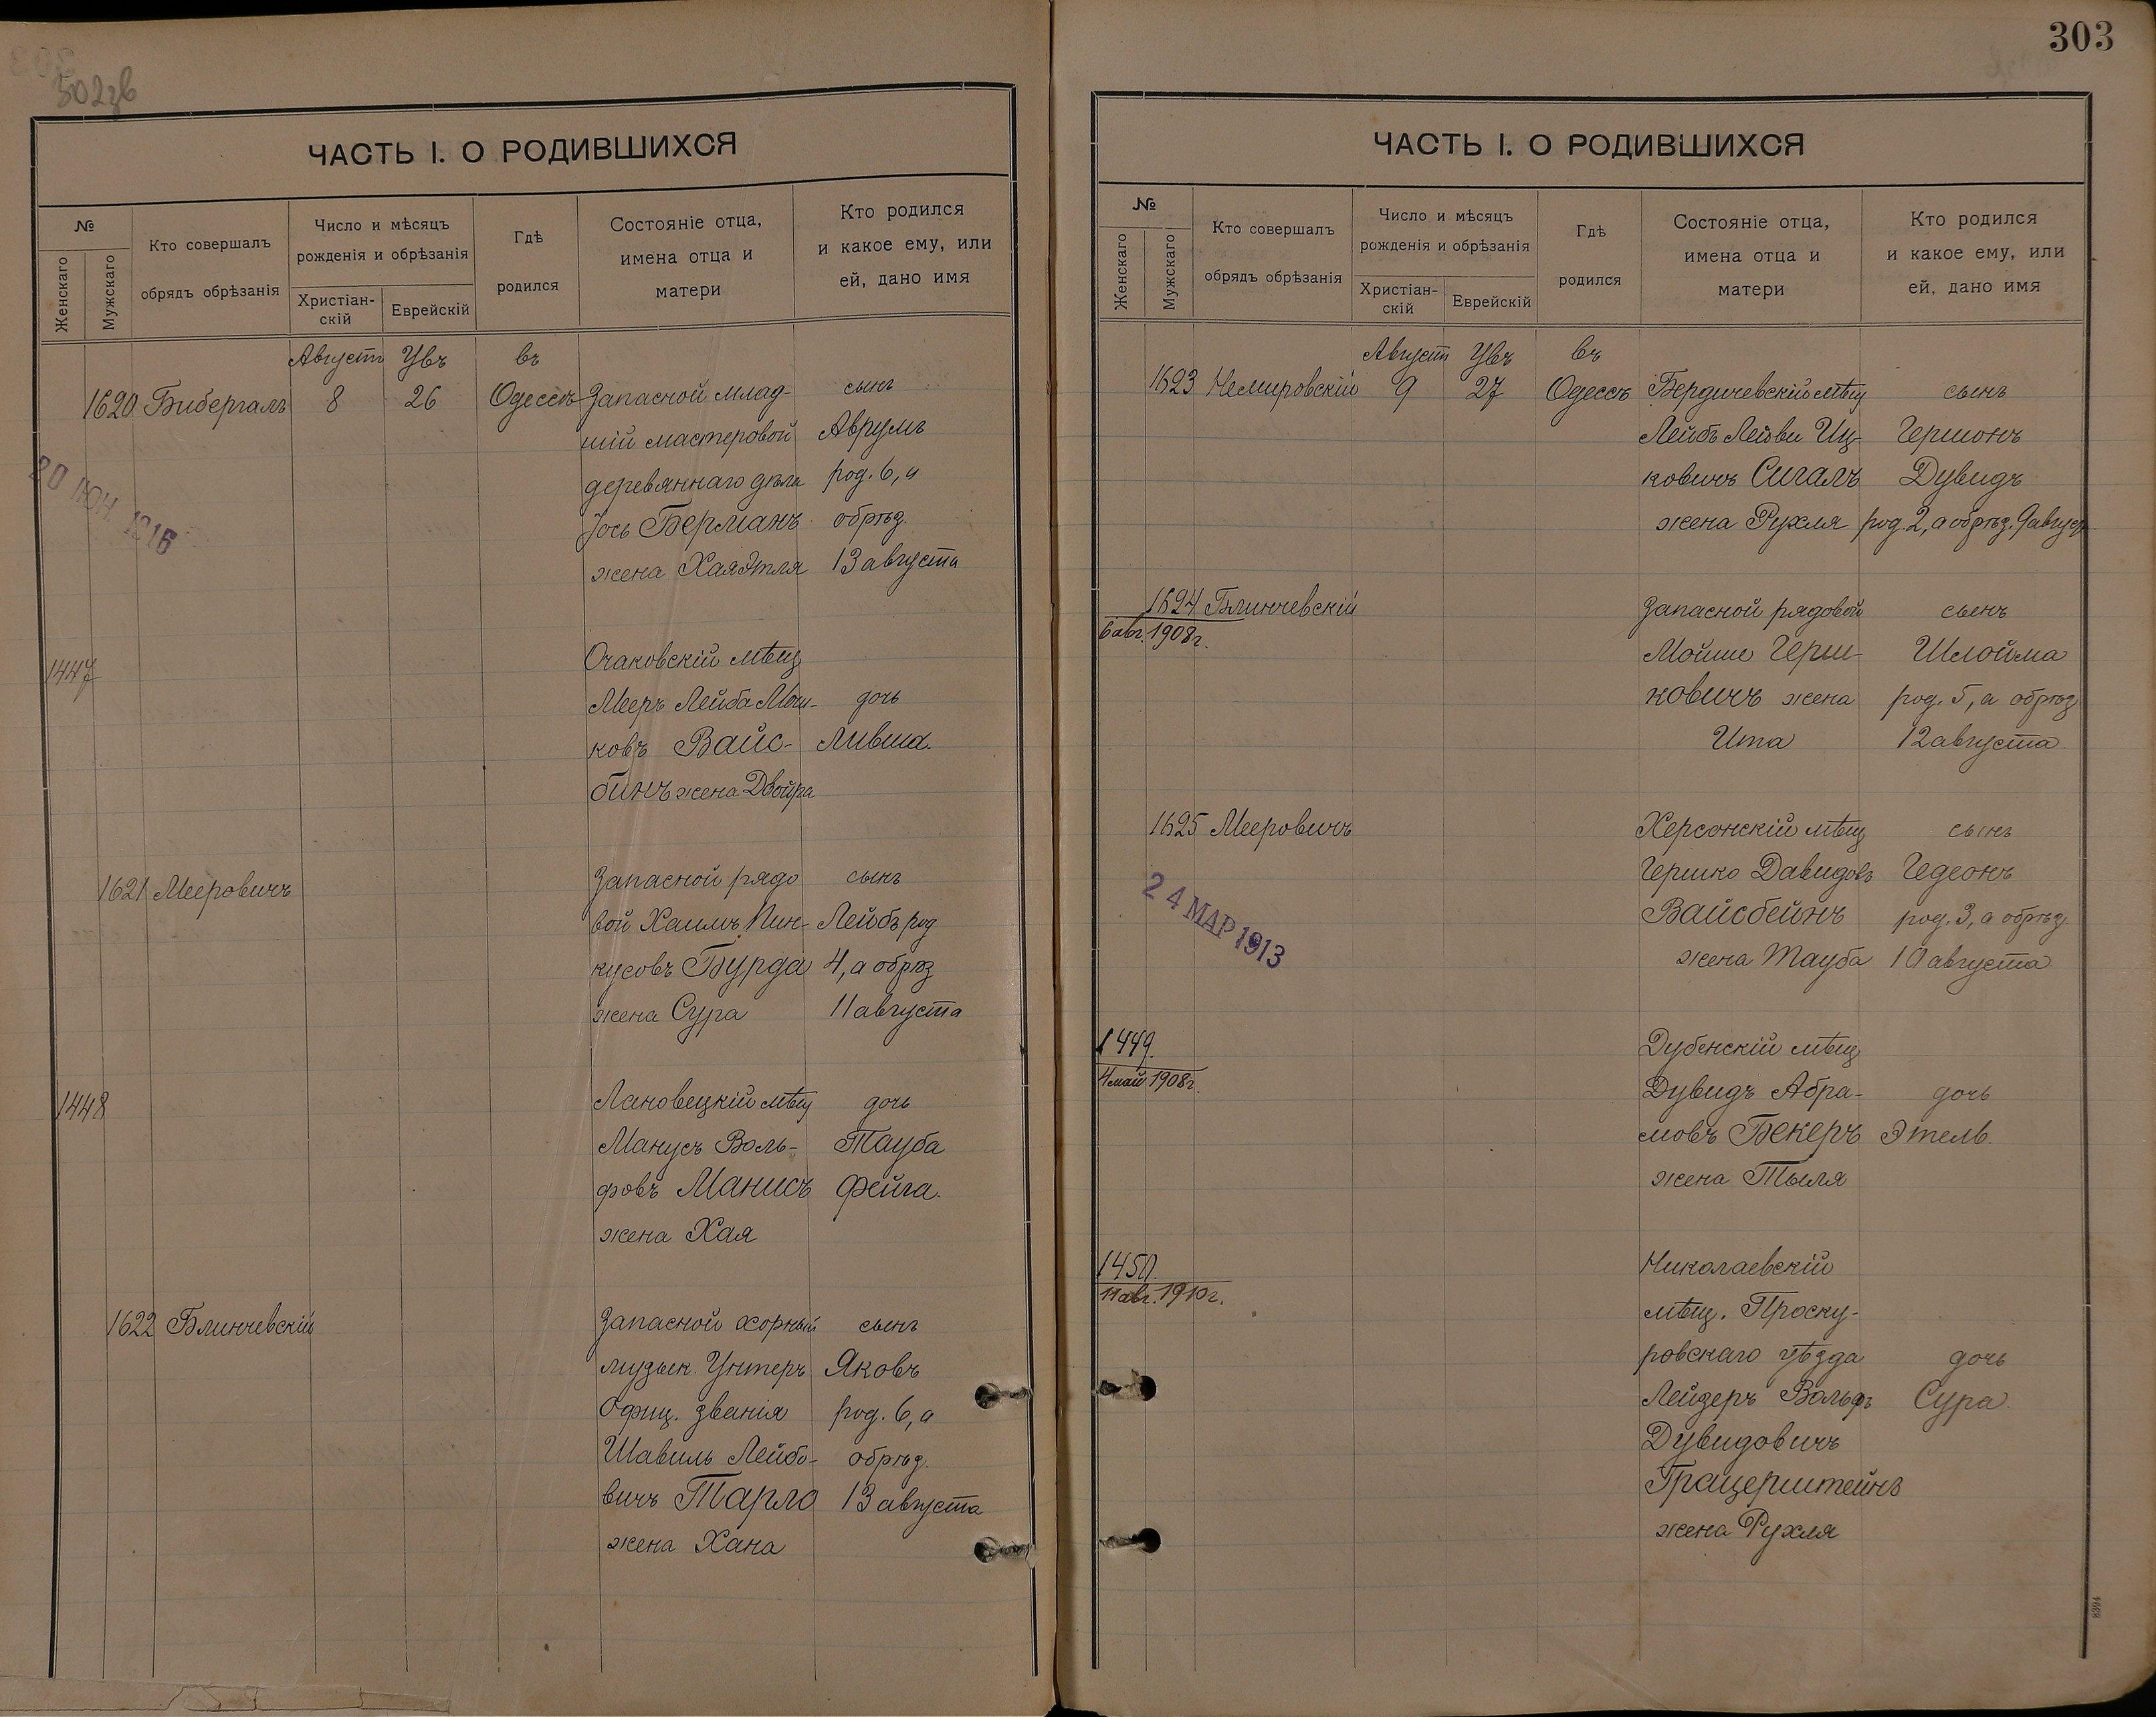 302зв
ЧАСТЬ I. О РОДИВШИХСЯ
№
Женскаго
Мужскаго
Кто совершалъ
обрядъ обрѣзанія
Число и мѣсяцъ
рожденія и обрѣзанія
Христіан-
скій
Еврейскій
Гдѣ
родился
Состояніе отца,
имена отца и
матери
Кто родился
и какое ему, или
ей, дано имя
Августъ Увъ въ
1620 Бибергалъ 8 26 Одессѣ Запасной млад- сынъ
шій мастеровой Аврумъ
деревяннаго дѣла род. 6, а
Іось Берманъ обрѣз.
жена Хая Этля 13 августа
20 ІЮН. 1916
1447 Очаковскій мѣщ.
Мееръ Лейба Мош- дочь
ковъ Вайс- Ливша.
бинъ жена Двойра
1621 Мееровичъ Запасной рядо сынъ
вой Хаимъ Пин- Лейбъ род
кусовъ Бурда 4, а обрѣз
жена Сура 11 августа
1448 Лановецкій мѣщ дочь
Манусъ Воль- Тауба
фовъ Манисъ Фейга.
жена Хая
1622 Блинчевскій Запасной хорный сынъ
музык. Унтеръ Яковъ
Офиц. званія род. 6, а
Шавиль Лейбо- обрѣз.
вичъ Тарло 13 августа
жена Хана
303
ЧАСТЬ I. О РОДИВШИХСЯ
№
Женскаго
Мужскаго
Кто совершалъ
обрядъ обрѣзанія
Число и мѣсяцъ
рожденія и обрѣзанія
Христіан-
скій
Еврейскій
Гдѣ
родился
Состояніе отца,
имена отца и
матери
Кто родился
и какое ему, или
ей, дано имя
Августъ Увъ въ
1623 Немировскій 9 27 Одессѣ Бердичевскій мѣщ сынъ
Лейбъ Лейви Иц- Гершонъ
ковичъ Сигалъ Дувидъ
жена Рухля род. 2, а обрѣз. 9 август
1624 Блинчевскій Запасной рядовой сынъ
6 авг. 1908 г.
Мойше Герш- Шлойма
ковичъ жена род. 5, а обрѣз
Ита 12 августа
1625 Мееровичъ Херсонскій мѣщ сынъ
Гершко Давидовъ Гедеонъ
Вайсбейнъ род. 3, а обрѣз.
жена Тауба 10 августа
24 МАР 1913
1449. Дубенскій мѣщ
4 май 1908 г.
Дувидъ Абра- дочь
мовъ Бекеръ Этель.
жена Тыля
1450. Николаевскій
11 авг. 1910 г.
мѣщ. Проску-
ровскаго уѣзда дочь
Лейзеръ Вольфъ Сура.
Дувидовичъ
Грацерштейнъ
жена Рухля
8394